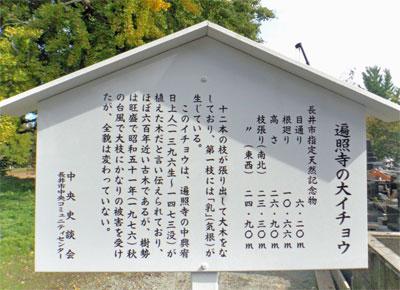 遍照寺の大イチョウ
長井市指定天然記念物
目通り　六・二〇m
根廻り　一〇・六六m
高さ　二六・九〇m
枝張り（南北）　二三・三〇m
〃（東西）　二四・九〇m
十二本の枝が張り出して大木をな
しており、第一枝には「乳」（気根）が
生じている。
このイチョウは、遍照寺の中興宥
日上人（一三九六生～一四七三没）が
植えた木だと言い伝えられており、
ほぼ六百年近い古木であるが、樹勢
は旺盛で昭和五十一年（一九七六）秋
の台風で大枝にかなりの被害を受け
たが、全貌は変わっていない。
中央史談会
長井市中央コミュニティセンター